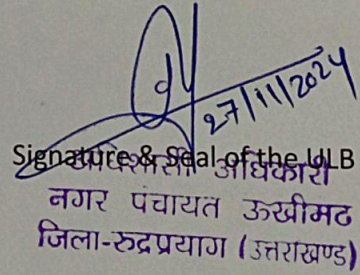 27/11/2024
Signature & Seal of the ULB
अधिशासी अधिकारी
नगर पंचायत ऊखीमठ
जिला-रुद्रप्रयाग (उत्तराखण्ड)